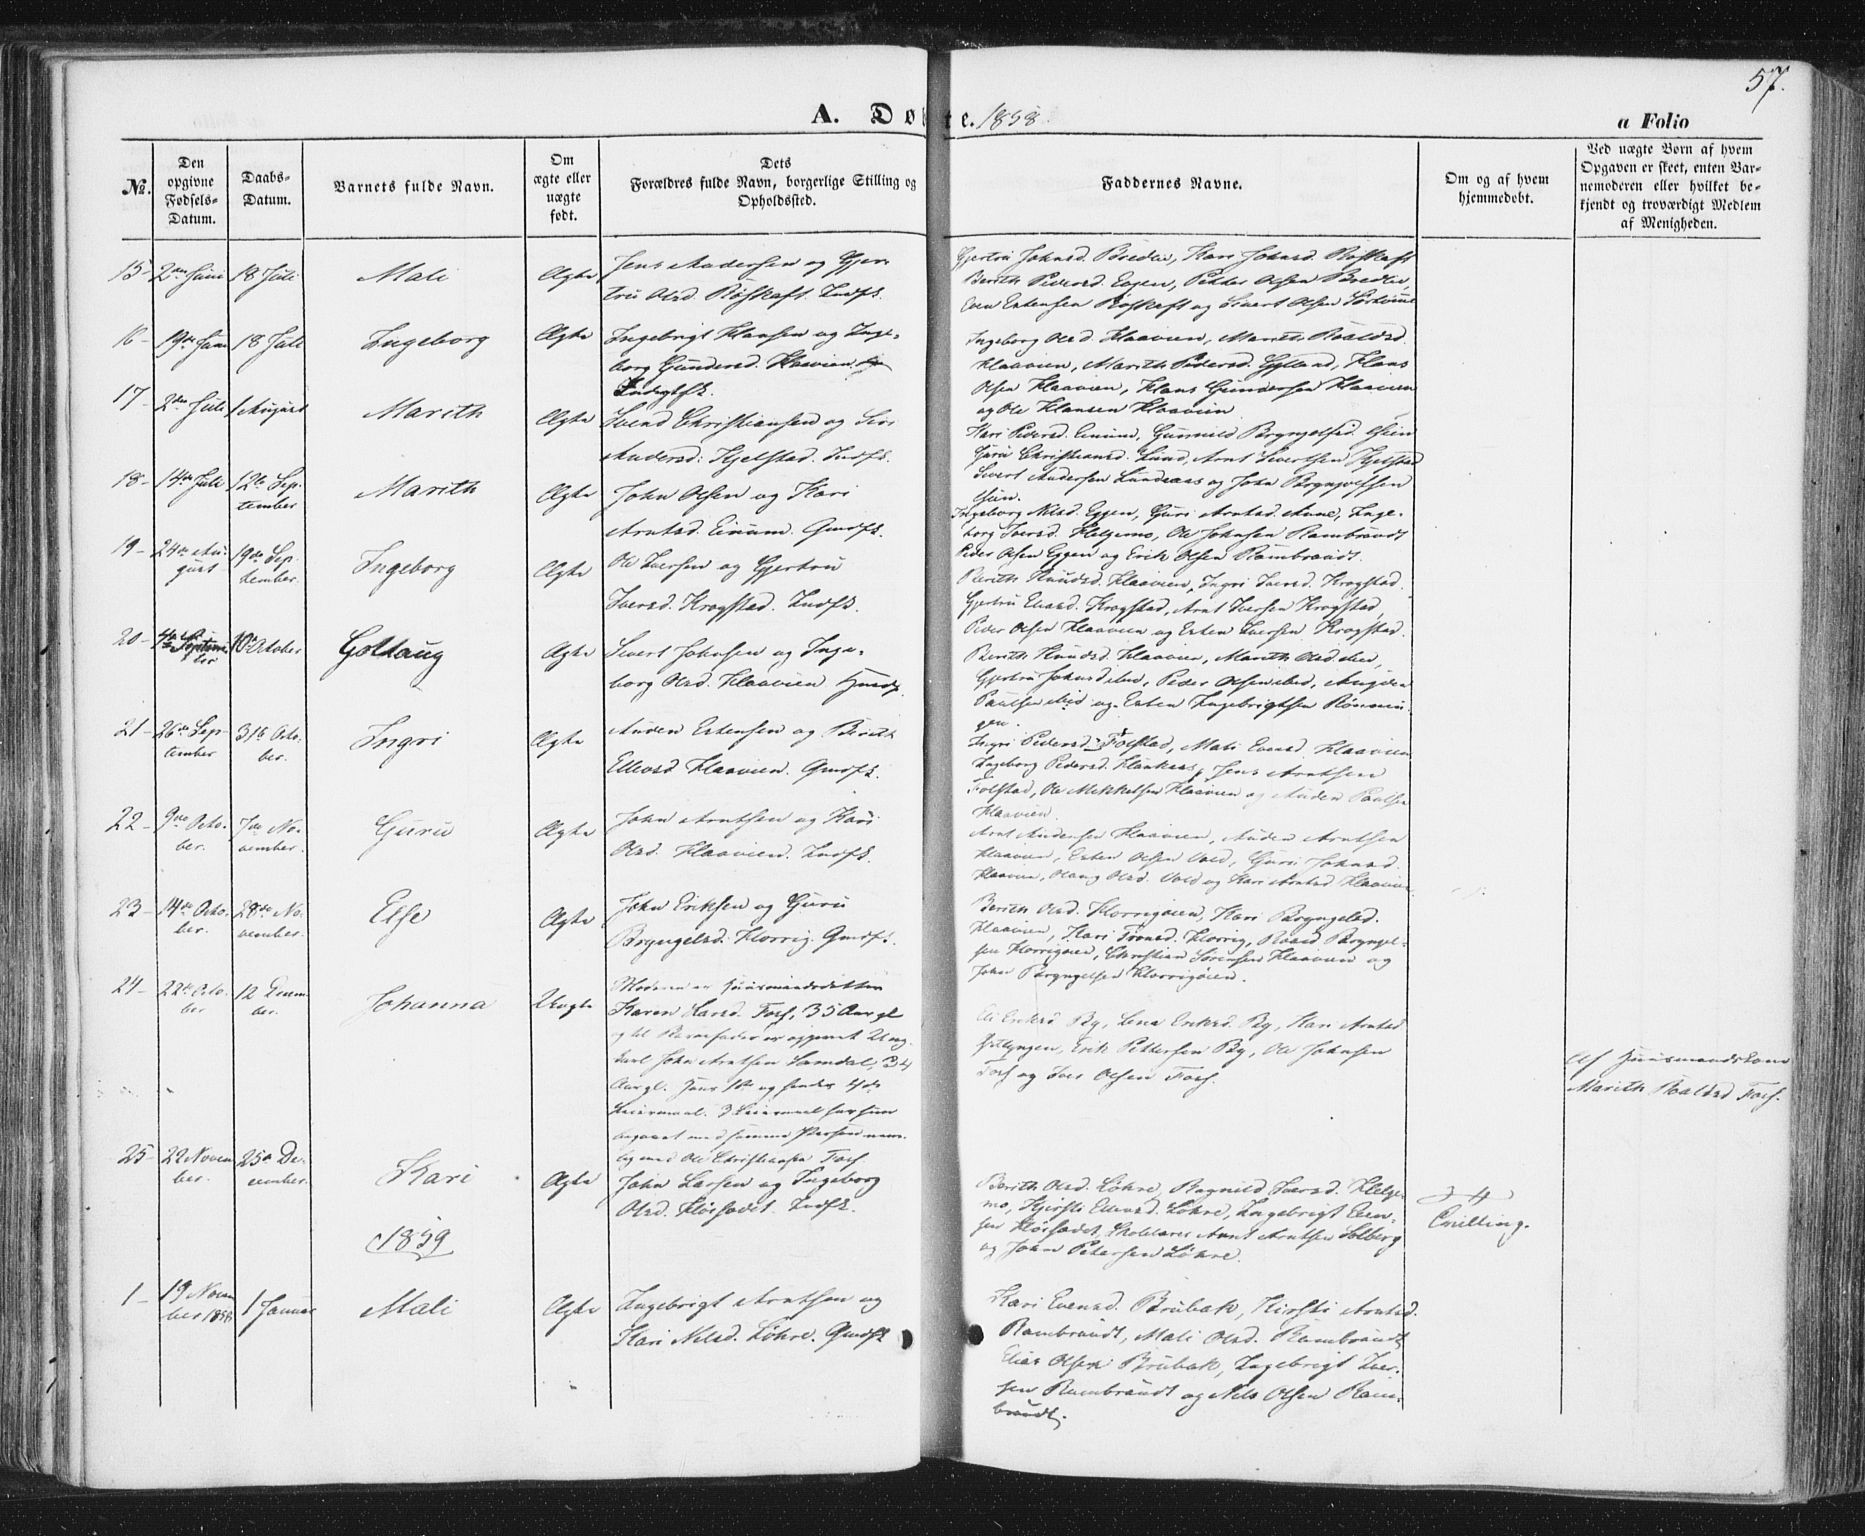 57.
A. Døbte. 1858
a Folio
No.
Den opgivne Fødsels-Datum.
Daabs-Datum.
Barnets fulde Navn.
Om ægte eller uægte født.
Dets Forældres fulde Navn, borgerlige Stilling og Opholdssted.
Faddernes Navne.
Om og af hvem hjemmedøbt.
Ved uægte Børn af hvem Opgaven er skeet, enten Barnemoderen eller hvilket bekjendt og troværdigt Medlem af Menigheden.
15- 2den Juni 18 Juli Mali Ægte
Jens Andersen og Gjer-
tru Olsd. Røskaft. Indfs.
Gjertru Johnsd. Bredlie, Kari Johnsd. Røskaft
Berith Pedersd. Eggen, Petter Olsen Bredlie,
Even Estensen Røskaft og Sivert Olsen
16- 19de Juni 18 Juli Ingeborg Ægte
Ingebrigt Hansen og Inge-
borg Gundersd. Haavien
Ingeborg Olsd. Haavien, Marith Roaldsd.
Haavien, Marith Pedersd. Gylland, Hans
Olsen Haavien, Hans Gundersen Haavien
og Ole Hansen Haavien
17- 2den Juli 1 August Marith Ægte
Svend Christiansen og Siri
Andersd: Kjelstad. Indfs.
Kari Pedersd. Einum, Gunnild Bryngelsd.
Guru Christiansd. Lund, Arnt Sivertsen Kjelstad
Sivert Andersen Lundaas og John Bryngelfsen
18- 14de Juli 12te September Marith Ægte
John Olsen og Kari
Arntsd. Einum. Gmdfs.
Ingeborg Nilsd. Eggen, Guri Arntsd. Aune, Inge-
borg Iversd. Helgemo, Ole Johnsen Rambraut
Peder Olsen Eggen og Erik Olsen Rambraudt.
19- 24de August 19de September Ingeborg Ægte
Ole Iversen og Gjertru
Iversd. Krogstad. Indfs.
Berith Knudsd. Haavien, Ingri Iversd. Krogstad.
Gjertru Evensd. Krogstad, Arnt Iversen Krogstad,
Peder Olsen Haavien og Esten Iversen Krogstad.
20- 10de October Gollaug Ægte
Sivert Johnsen og Inge-
borg Olsd. Haavien
Berith Knudsd. Haavien, Marith Olsd. ibid,
Gjertru Johnsd ibid, Peder Olsen ibid,
Paulsen ibid og Esten Ingebrigtsen Rønnin-
gen.
21- 26de September 31te October Ingri Ægte
Anders Estensen og Berith
Ellevsd Haavien. Gmdfs.
Ingri Pedersd. Folstad, Mali Evensd Haavien
Ingeborg Pedersd. Jens Arntsen
Folstad, Ole Mikkelsen Haavien og Anders Paulsen
Haavien.
22- 9de October 7de November Guru Ægte
John Arntsen og Kari
Olsd. Haavien. Indfs.
Arnt Andersen Haavien, Anders Arntsen
Haavien, Esten Olsen Vold, Guri Johnsd.
Haavien, Olaug Olsd. Vold og Kari Arntsd Haavien
23- 14de October 28de November Else Ægte
John Eriksen og Guru
Bryngelsd. Horrig. Gmdfs.
Berith Olsd. Horrigøien, Kari Bryngelsd.
Haavien, Kari Tronsd. Horrig, Roald Bryngel-
sen Horrigøien, Christian Sørensen Haavien og
John Bryngelsen Horrigøien.
24- 22de October 12 December Johanna Uægte
Moderen er Huusmandsdatter
Karen Larsd. Foss, 35 Aar gl
og til Barnefader er opgivet Ung-
karl John Arntsen Samdal, 34
Aar gl. Hans 1te og hendes 4de
Leiermaal. 3 Leiermaal har hun
begaaet med samme Person nem-
lig med Ole Christiansen Foss
Eli Eriksd By, Lena Eriksd. By, Kari Arntsd
Erik Pettersen By, Ole Johnsen
Foss og Iver Olsen Foss.
Af Huusmandskone
Marith Roaldsd Foss.
25- 22 November 25de December Kari Ægte
John Larsen og Ingeborg
Olsd. Indfs.
Berith Olsd. Løhre, Ragnild Iversd. Helge-
mo, Kjersti Ellevsd. Løhre, Ingebrigt Even-
sen Skolelærer Arnt Arntsen Solberg
og John Petersen Løhre.
1859
1- 19 November 1858 1 Januar Mali Ægte
Ingebrigt Arntsen og
Kari Nilsd. Løhre. Gmdfs
Kari Evensd. Brubak, Kirsti Arntsd.
Rambraudt, Mali Olsd. Rambraudt
Elias Olsen Brubak, Ingebrigt Iver-
sen Rambraudt og Nils Olsen Ram-
braudt.